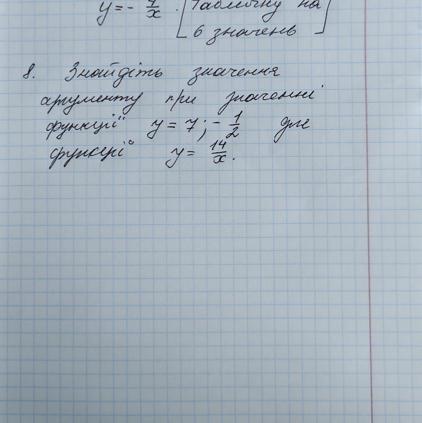 y = - 7/x . [Табличку на
6 значень]
8. Знайдіть значення
аргументу при значенні
функції y = 7; - 1/2 для
функції y = 14/x.